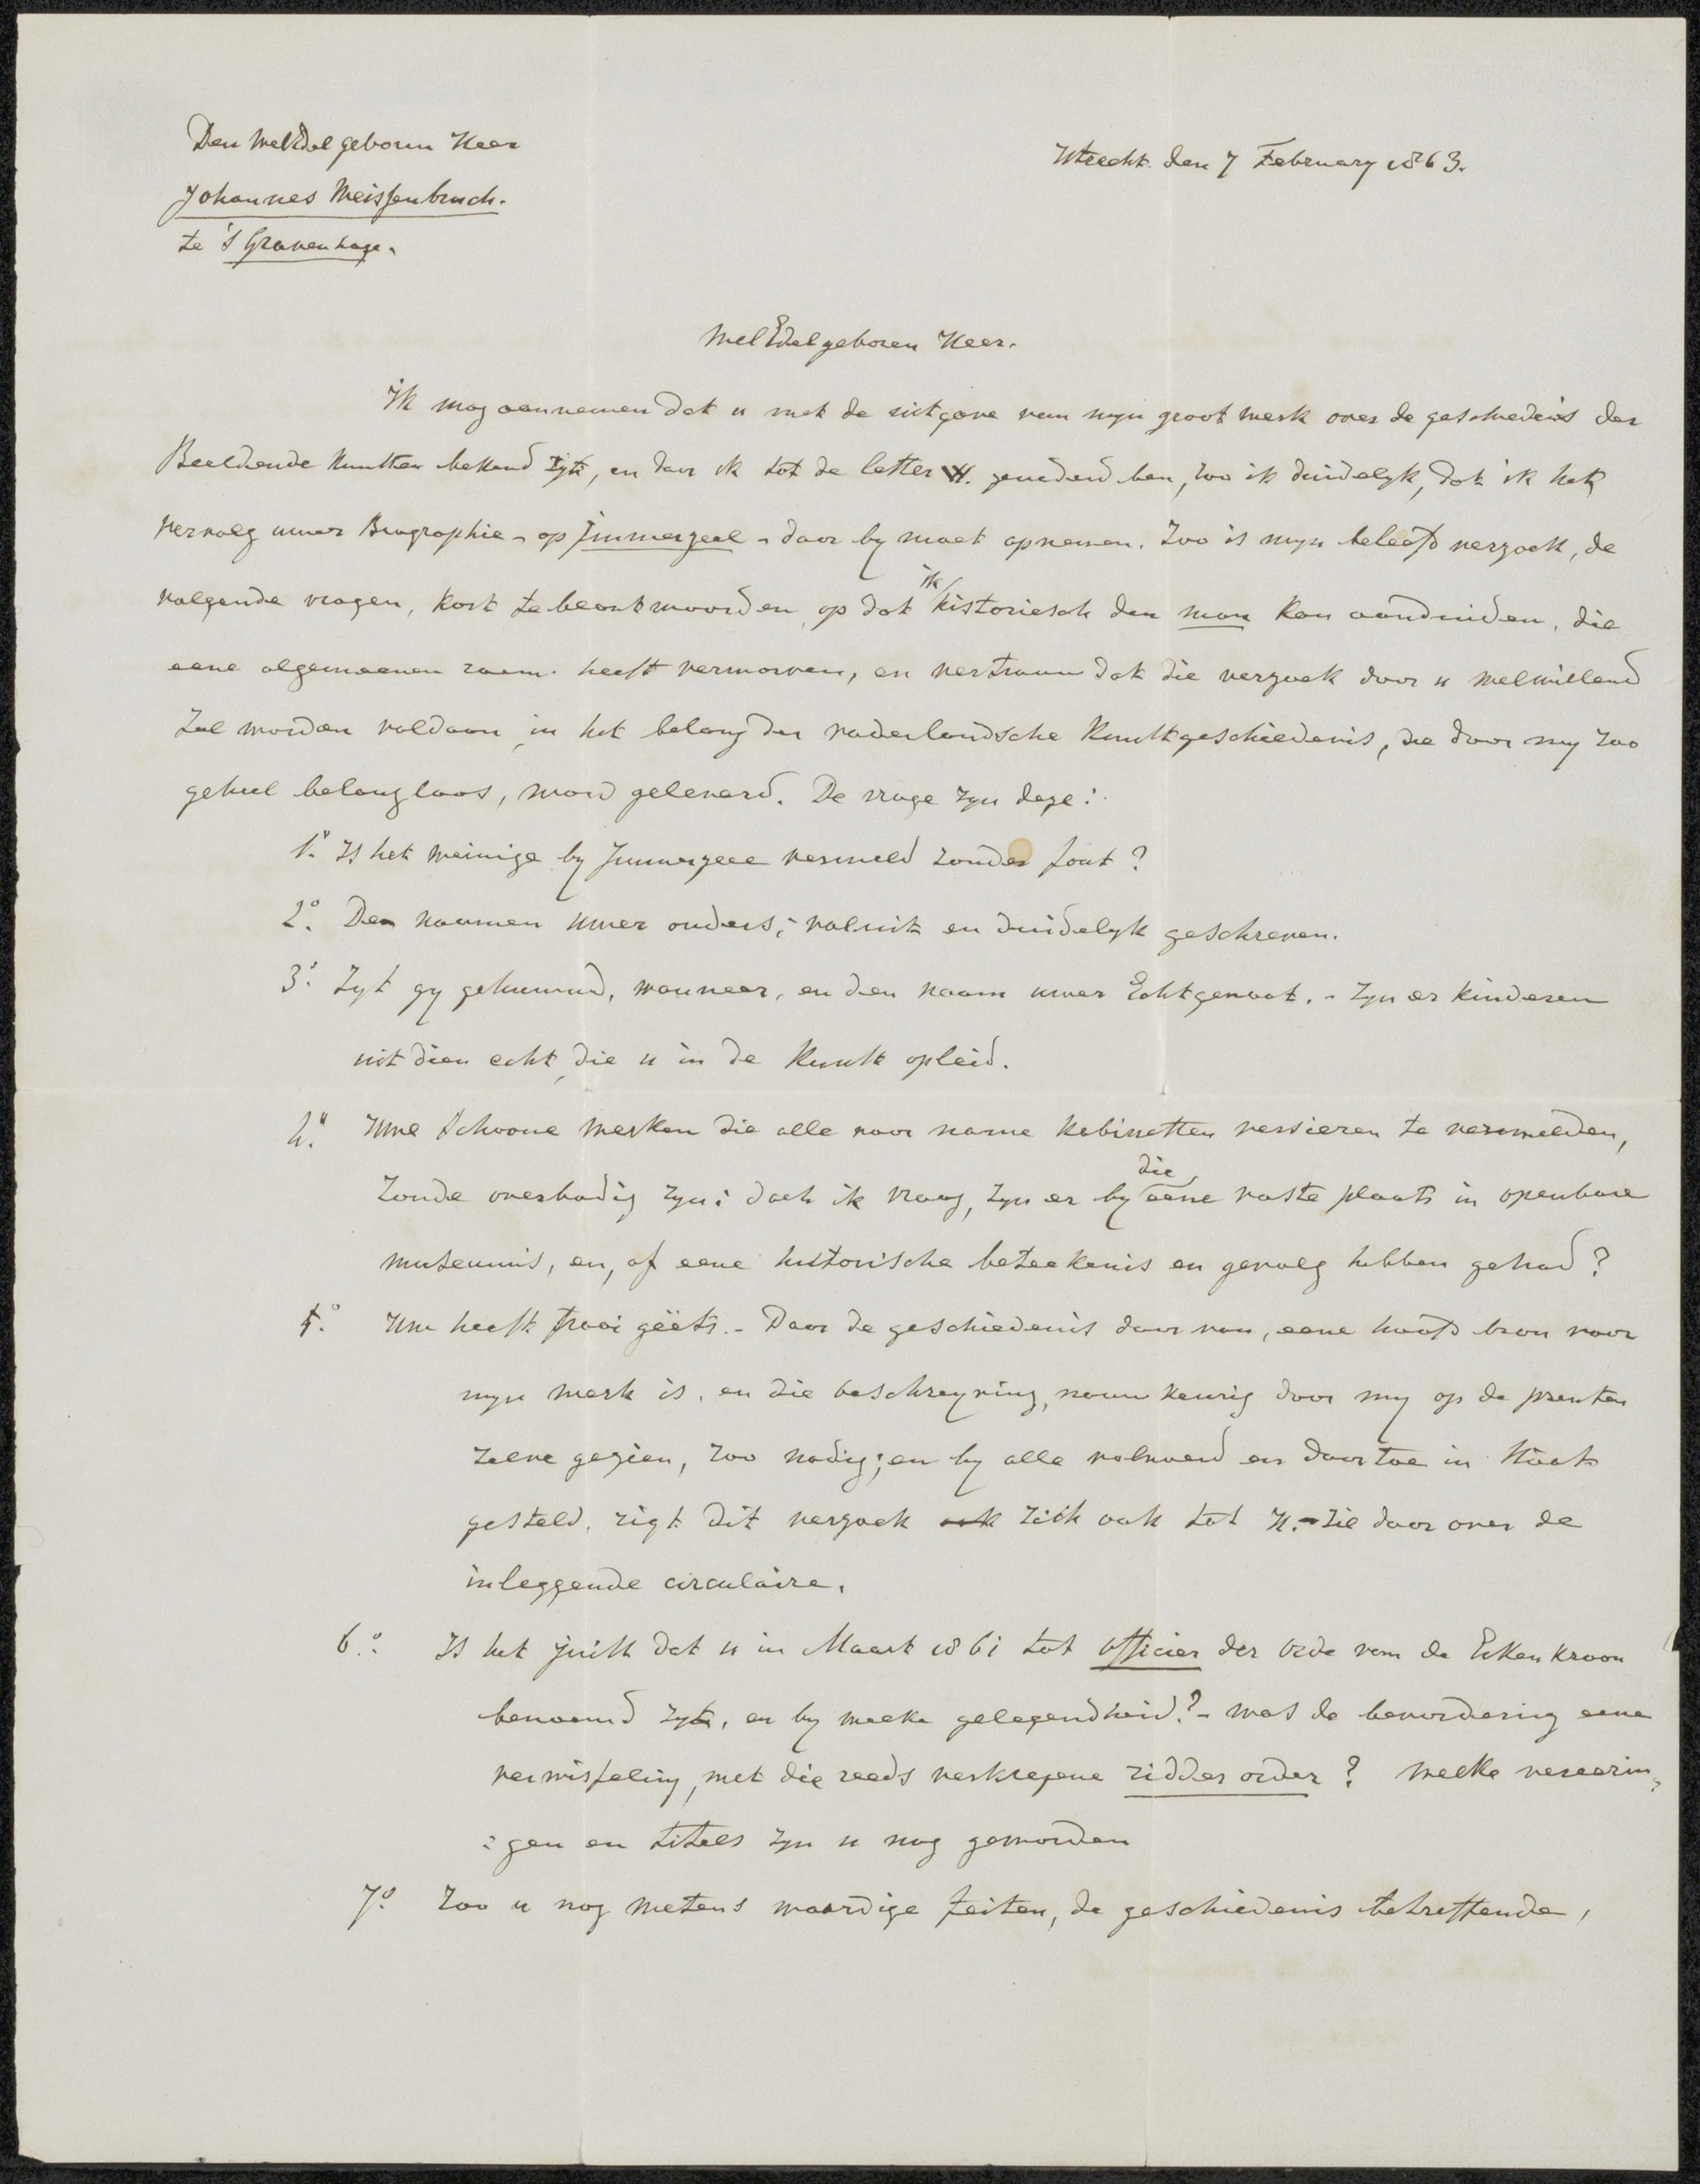 Den WelEdel geboren Heer
Utrecht den 7 February 1863.
Johannes Weissenbruch.
te 's Gravenhage.
WelEdelgeboren Heer.
Ik mag aannemen dat u met de uitgave van myn groot werk over de geschiedenis der
Beeldende Kunsten bekend zyt, en daar ik tot de letter W. genaderd ben, zoo is duidelyk, dat ik het
vervolg uwer Biographie - op Immerzeel - daar by moet opnemen. Zoo is myn beleefd verzoek, de
volgende vragen, kort te beantwoorden, op dat ik historiesch den man kan aanduiden, die
eene algemeenen roem heeft verworven, en vertrouw dat die verzoek door u welwillend
zal worden voldaan in het belang der vaderlandsche Kunstgeschiedenis, die door my zoo
geheel belangloos, word geleverd. De vrage zyn deze:
1.° Is het weinige by Immerzeel vermeld zonder fout?
2.° Den naamen uwer ouders; voluit en duidelyk geschreven.
3.° Zyt gy gehuwd, wanneer, en den naam uwer Echtgenoot. - Zyn er kinderen
uit dien echt, die u in de Kunst opleid.
4.° Uwe schoone werken die alle voor name kabinetten versieren te vermelden,
zoude overbodig zyn; doch ik vraag, zyn er by die eene vaste plaats in openbare
museums, en, of eene historische beteekenis en gevolg hebben gehad?
5.° Uw heeft fraai geëts. - Daar de geschiedenis daar van, eene hoofd bron voor
myn werk is, en die beschryving, nauw keurig door my op de prenten
zelve gezien, zoo nodig; en by alle volvoerd en daar toe in staat
gesteld, rigt dit verzoek ook zich ook tot U. - zie daar over de
inleggende circulaire.
6.° Is het juist dat u in Maart 1861 tot officier der Orde van de Eiken Kroon
benoemd zyt, en by welke gelegendheid? - was de bevordering eene
verwisseling, met die reeds verkregene ridder order? Welke vereerin,
: gen en titels zyn u nog geworden
7.° Zoo u nog wetens waardige feiten, de geschiedenis betreffende,